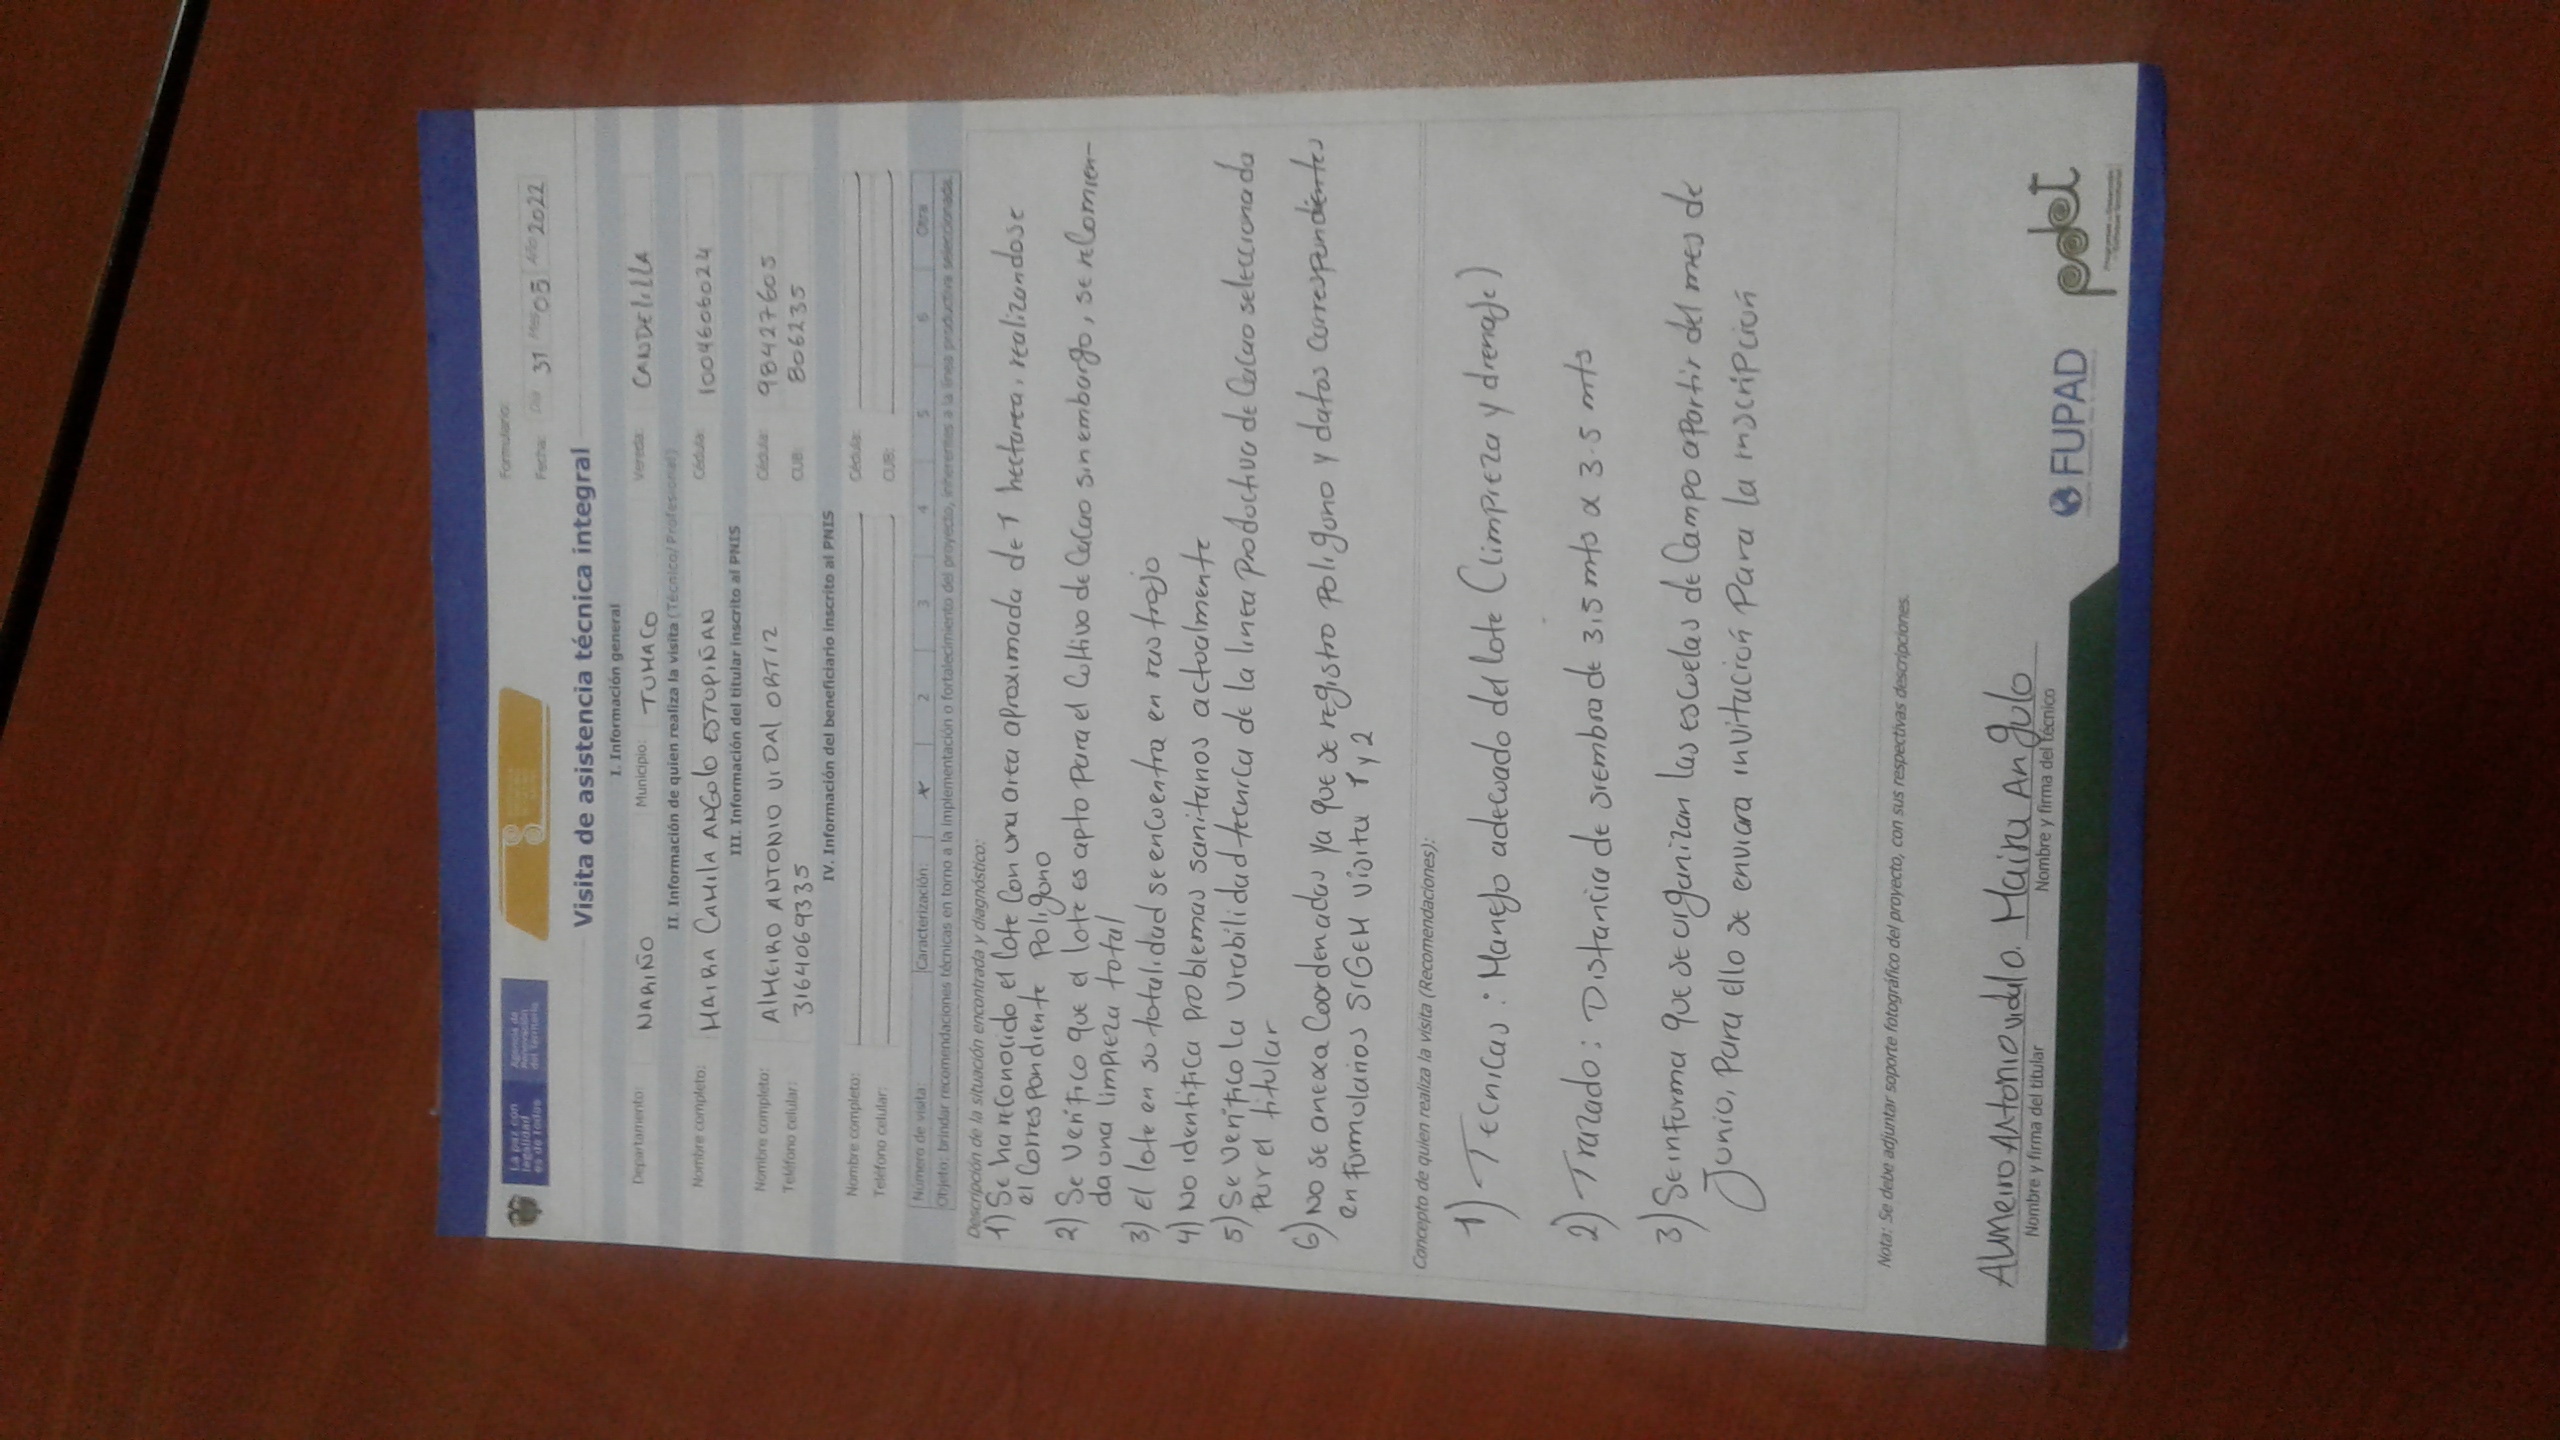 La paz con
legalidad
es de todos
Agencia de
Renovación
del Territorio
Formulario:
Fecha: Día 31 Mes 05 Año 2022
Visita de asistencia técnica integral
I. Información general
Departamento: NARIÑO Municipio: TUMACO Vereda: CANDELILLA
II. Información de quien realiza la visita (Técnico/Profesional)
Nombre completo: MAIRA CAMILA ANGULO ESTUPIÑAN Cédula: 1004606024
III. Información del titular inscrito al PNIS
Nombre completo: ALMEIRO ANTONIO VIDAL ORTIZ Cédula: 98427605
Teléfono celular: 3164069335 CUB: 806235
IV. Información del beneficiario inscrito al PNIS
Nombre completo: Cédula:
Teléfono celular: CUB:
Número de visita: Caracterización: X 2 3 4 5 6 Otra
Objeto: brindar recomendaciones técnicas en torno a la implementación o fortalecimiento del proyecto, inherentes a la línea productiva seleccionada.
Descripción de la situación encontrada y diagnóstico:
1) Se ha reconocido el lote con una area aproximada de 1 hectarea, realizandose
el correspondiente Poligono
2) Se Verifico que el lote es apto para el cultivo de Cacao sin embargo, se recomien-
da una limpieza total
3) El lote en su totalidad se encuentra en rastrojo
4) No identifica problemas sanitarios actualmente
5) Se verifico la viabilidad tecnica de la linea productiva de Cacao seleccionada
por el titular
6) No se anexa Coordenadas ya que se registro poligono y datos correspondientes
en formularios SIGEM visita 1 y 2
Concepto de quien realiza la visita (Recomendaciones):
1) Tecnicas: Manejo adecuado del lote (limpieza y drenaje)
2) Trazado: Distancia de siembra de 3,5 mts x 3.5 mts
3) Se informa que se organizan las escuelas de Campo apartir del mes de
Junio, Para ello se enviara invitación Para la inscripción
Nota: Se debe adjuntar soporte fotográfico del proyecto, con sus respectivas descripciones.
Almeiro Antonio vidal o. Maira Angulo
Nombre y firma del titular Nombre y firma del técnico
FUPAD
pdet